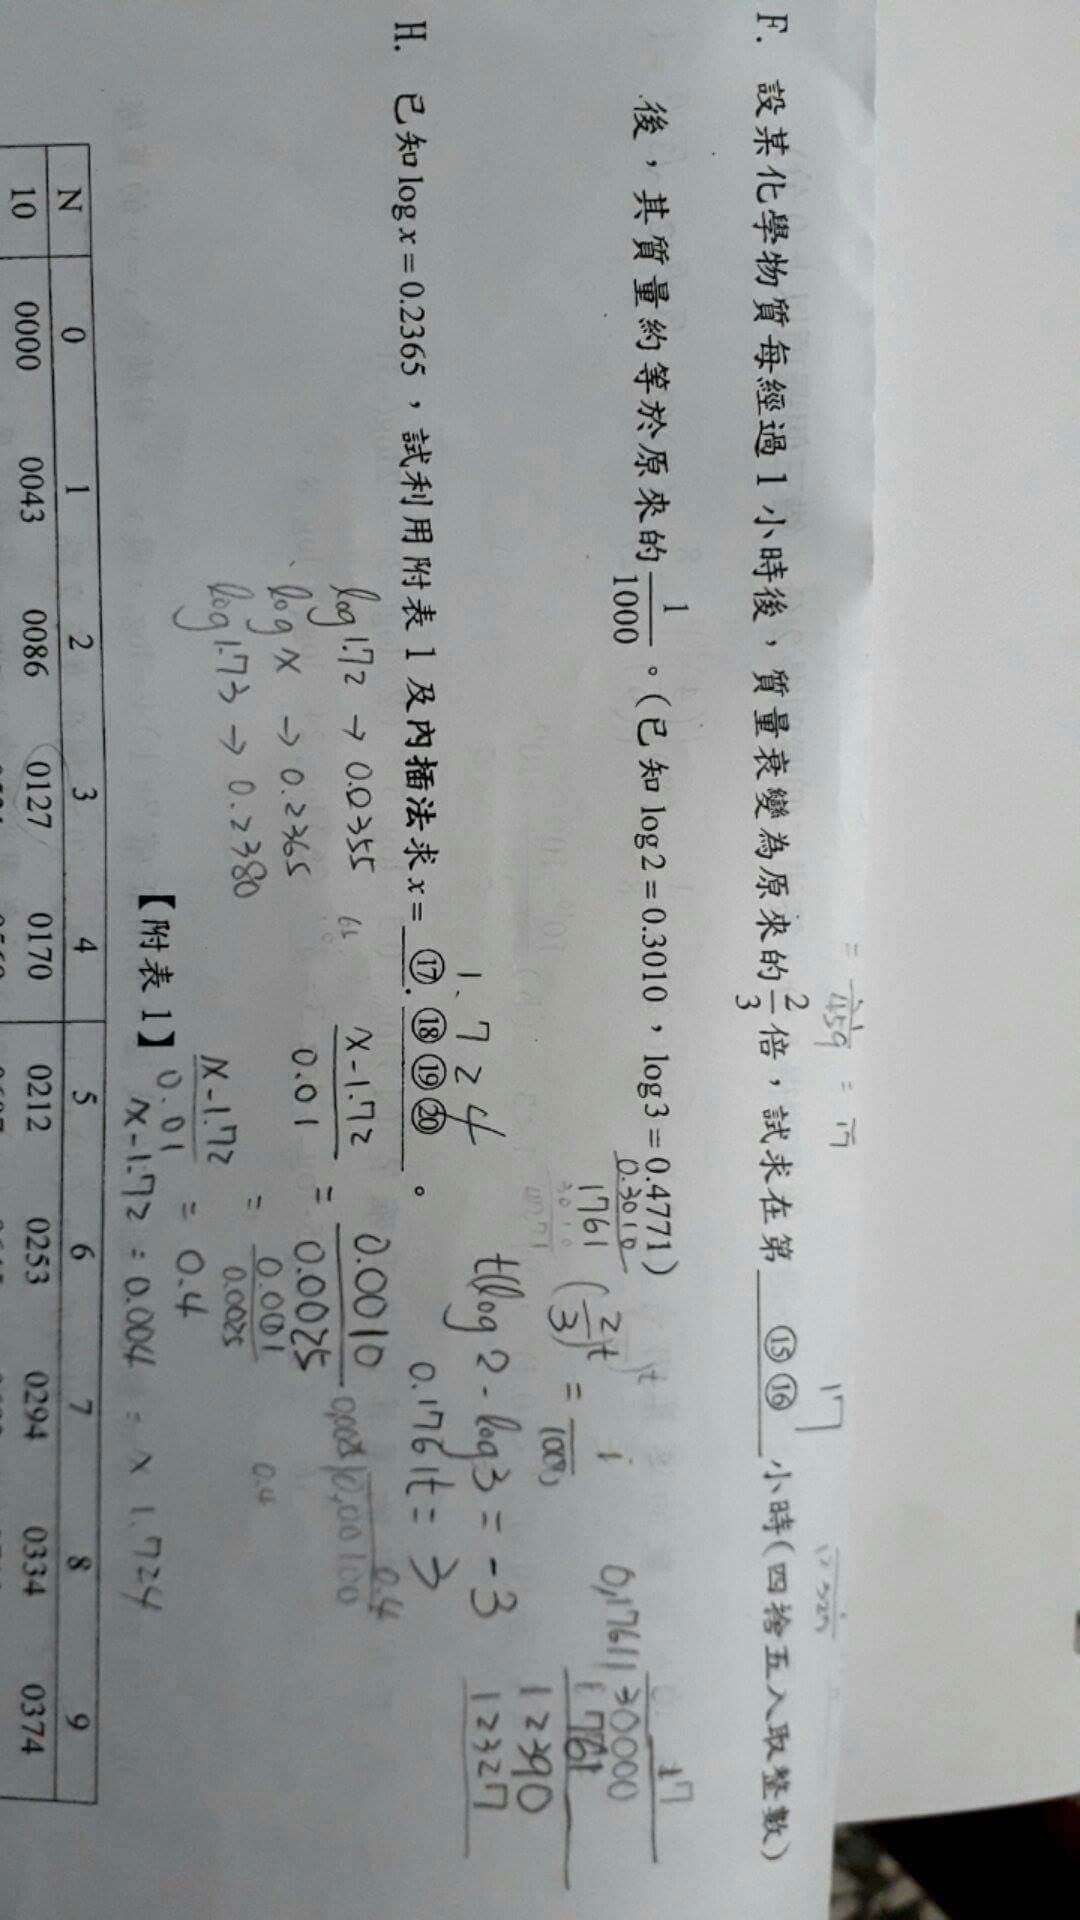 = 1/459 = 17
F. 設某化學物質每經過1小時後，質量衰變為原來的2/3倍，試求在第 ⑮⑯ 小時(四捨五入取整數)
17
後，其質量約等於原來的1/1000。(已知log2=0.3010，log3=0.4771)
0.3010
1761
(2/3)^t = 1/1000
t(log2-log3=-3
0.1761t=3
17
0.1761 30000
1761
12390
12327
H. 已知log x=0.2365，試利用附表1及內插法求x= ⑰.⑱⑲⑳ 。
1.724
log1.72→0.0355
log x→0.2365
log1.73→0.2380
x-1.72/0.01 = 0.0010/0.0025
0.4
0.00100
x-1.72/0.01 = 0.001/0.0025
= 0.4
0.4
x-1.72=0.004 = x 1.724
【附表1】
N 0 1 2 3 4 5 6 7 8 9
10 0000 0043 0086 0127 0170 0212 0253 0294 0334 0374